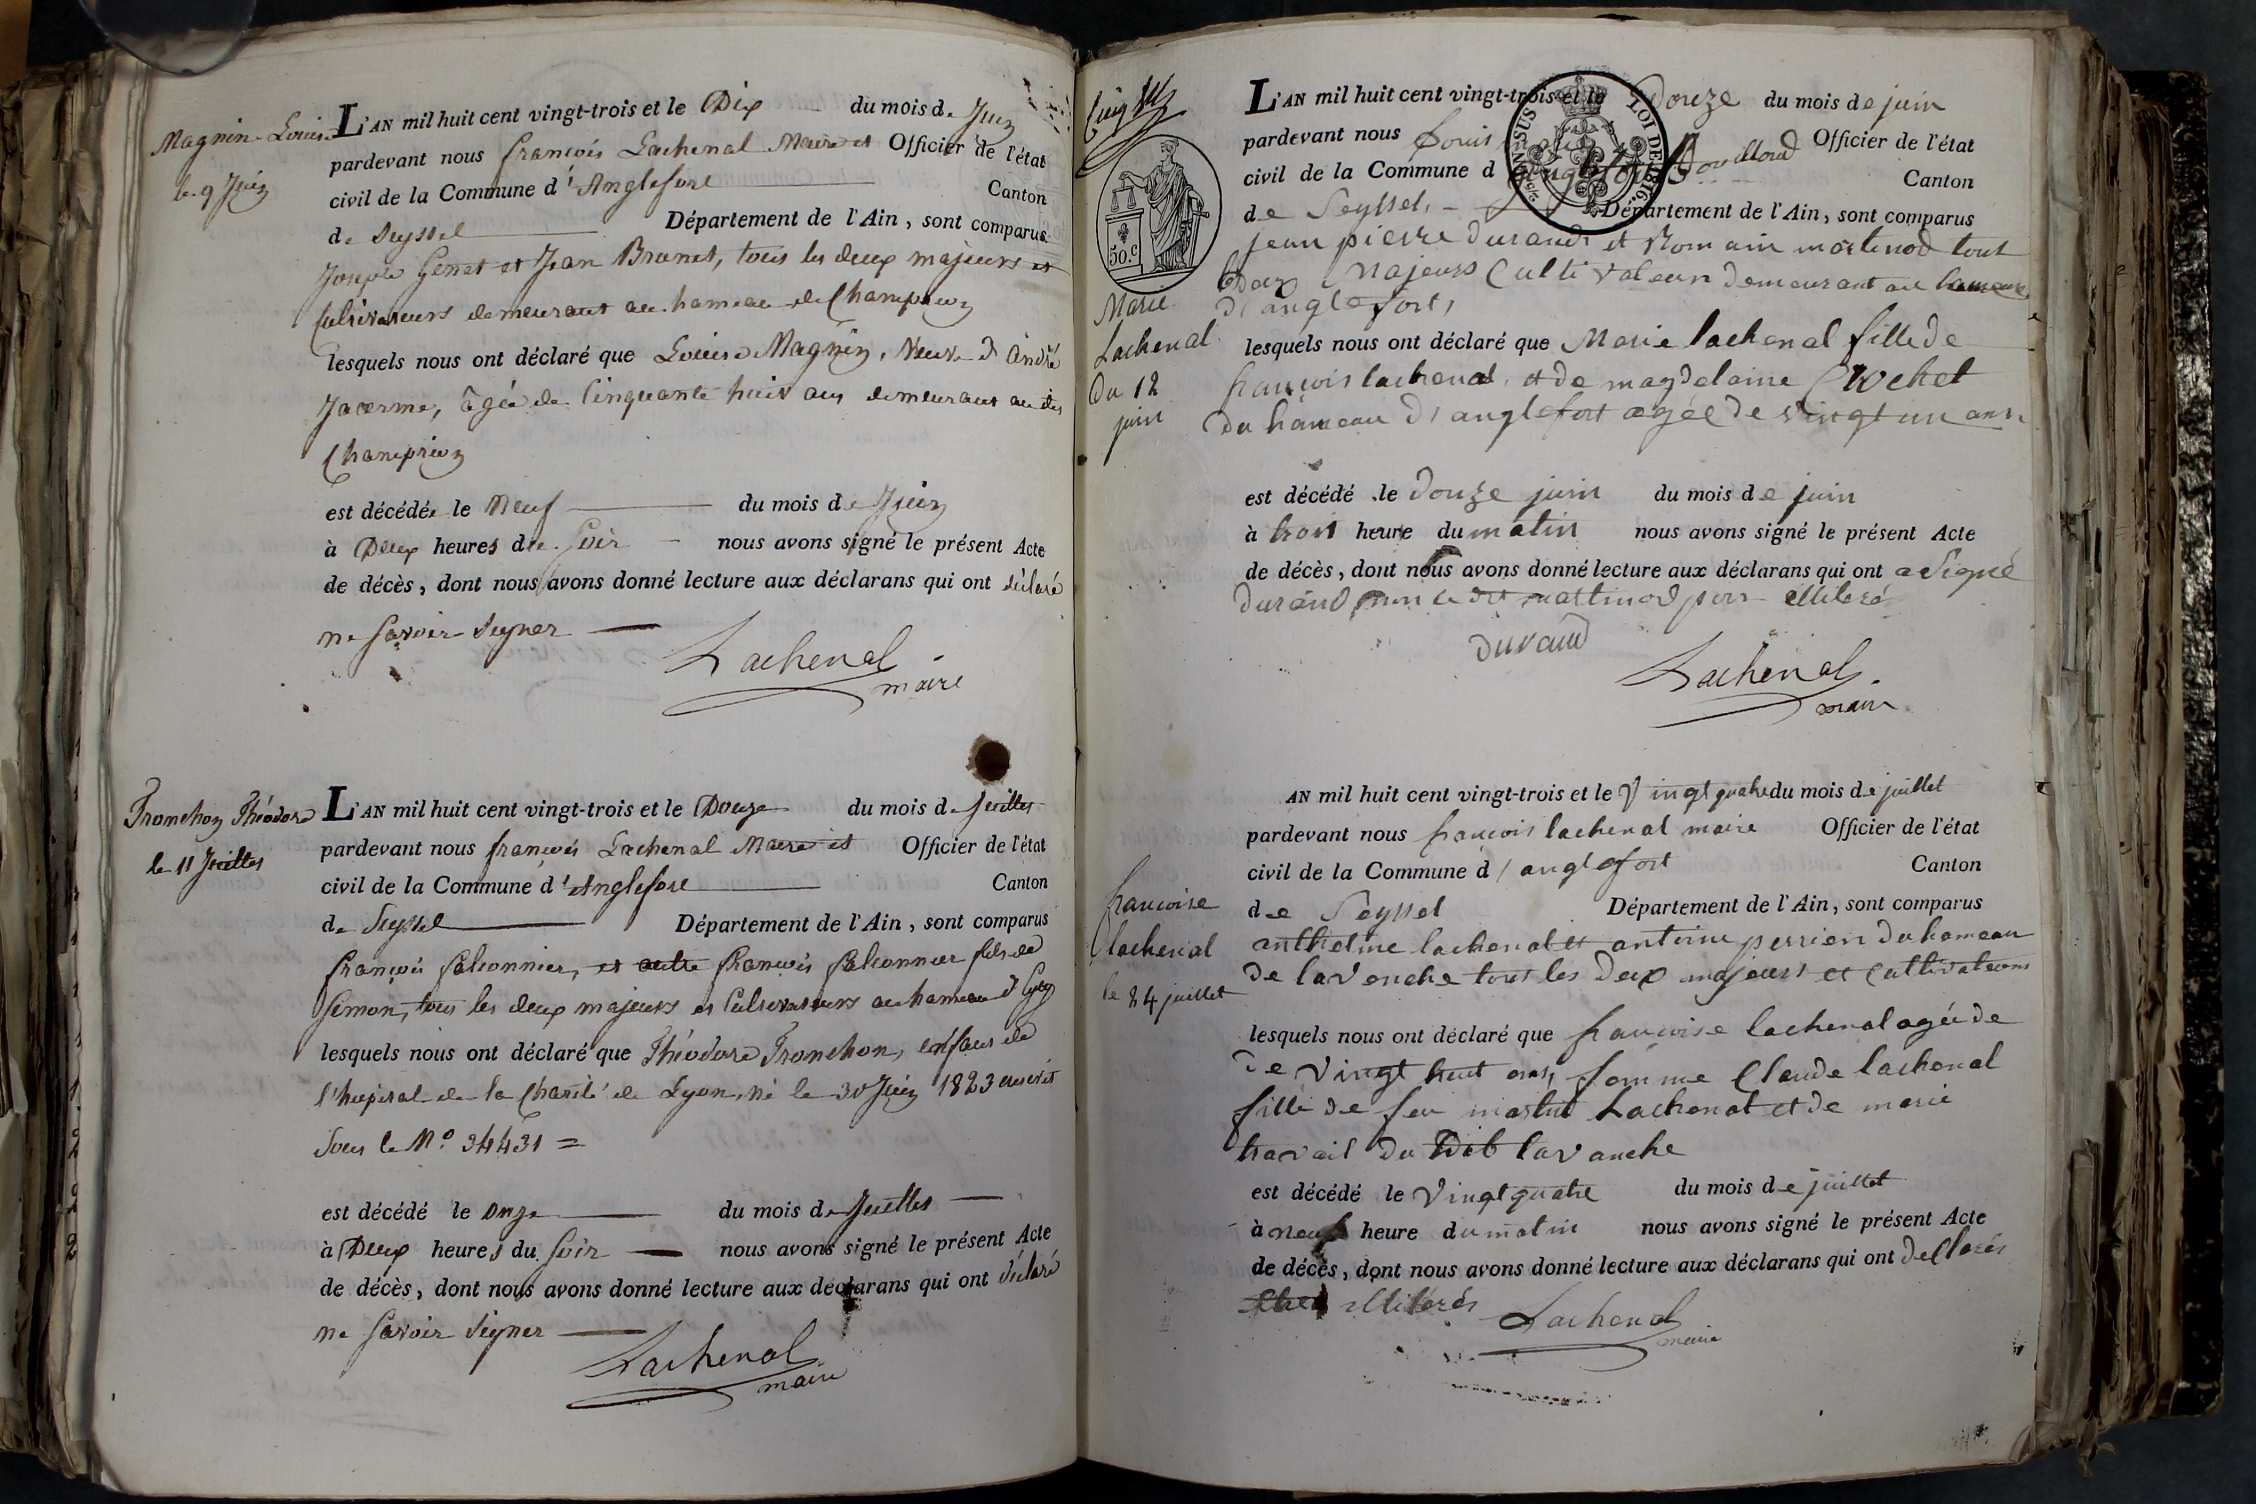 Magnin Louise
le 9 Juin
L'AN mil huit cent vingt-trois et le Dix du mois de Juin
pardevant nous françois Lachenal Maire et Officier de l'état
civil de la Commune d'Anglefort Canton
de Seyssel Département de l'Ain, sont comparus
Joseph Genet et Jean Brunet, tous les deux majeurs et
Cultivateurs demeurant au hameau de Champrion
lesquels nous ont déclaré que Louise Magnin, Veuve d'André
Jacerme, âgée de Cinquante huit ans demeurant au dit
Champrion
est décédée le Neuf du mois de Juin
à Deux heures du Soir nous avons signé le présent Acte
de décès, dont nous avons donné lecture aux déclarans qui ont déclaré
ne savoir Signer
Lachenal
maire
Tronchon Théodore
le 11 Juillet
L'AN mil huit cent vingt-trois et le Douze du mois de Juillet
pardevant nous françois Lachenal Maire et Officier de l'état
civil de la Commune d'Anglefort Canton
de Seyssel Département de l'Ain, sont comparus
françois falconnier, et autre françois falconnier fils de
Simon, tous les deux majeurs et Cultivateurs au hameau d'
lesquels nous ont déclaré que Théodore Tronchon, enfant de
l'hopital de la Charité de Lyon, né le 30 Juin 1823 inscrit
Sous le N.º 34431 =
est décédé le onze du mois de Juillet
à Deux heures du Soir nous avons signé le présent Acte
de décès, dont nous avons donné lecture aux déclarans qui ont déclaré
ne savoir Signer
Lachenal
maire
50.C
Marie
Lachenal
du 12
juin
SUS
LOI DE 1816
L'AN mil huit cent vingt-trois et le Douze du mois de juin
pardevant nous Louis Officier de l'état
civil de la Commune d Canton
de Seyssel Département de l'Ain, sont comparus
jean pierre durand et Romain martinod tout
deux Majeurs Cultivateurs demeurant au hameau
d'anglefort,
lesquels nous ont déclaré que Marie lachenal fille de
françois lachenal et de magdelaine Crochet
du hameau d'anglefort agée de vingt un ans
est décédé le douze juin du mois de juin
à trois heure du matin nous avons signé le présent Acte
de décès, dont nous avons donné lecture aux déclarans qui ont a Signé
durand non le dit martinod pour illiteré
durand
Lachenal
maire
francoise
lachenal
le 24 juillet
AN mil huit cent vingt-trois et le Vingt quatre du mois de juillet
pardevant nous francois lachenal maire Officier de l'état
civil de la Commune d'anglefort Canton
de Seyssel Département de l'Ain, sont comparus
anthelme lachenal et antoine perrier du hameau
de lavanche tous les deux majeurs et Cultivateurs
lesquels nous ont déclaré que francoise lachenal agée de
de vingt huit ans, femme Claude lachenal
fille de feu martin Lachenal et de marie
travail du dit lavanche
est décédé le Vingt quatre du mois de juillet
à neuf heure du matin nous avons signé le présent Acte
de décès, dont nous avons donné lecture aux déclarans qui ont declarés
illiterés
Lachenal
maire